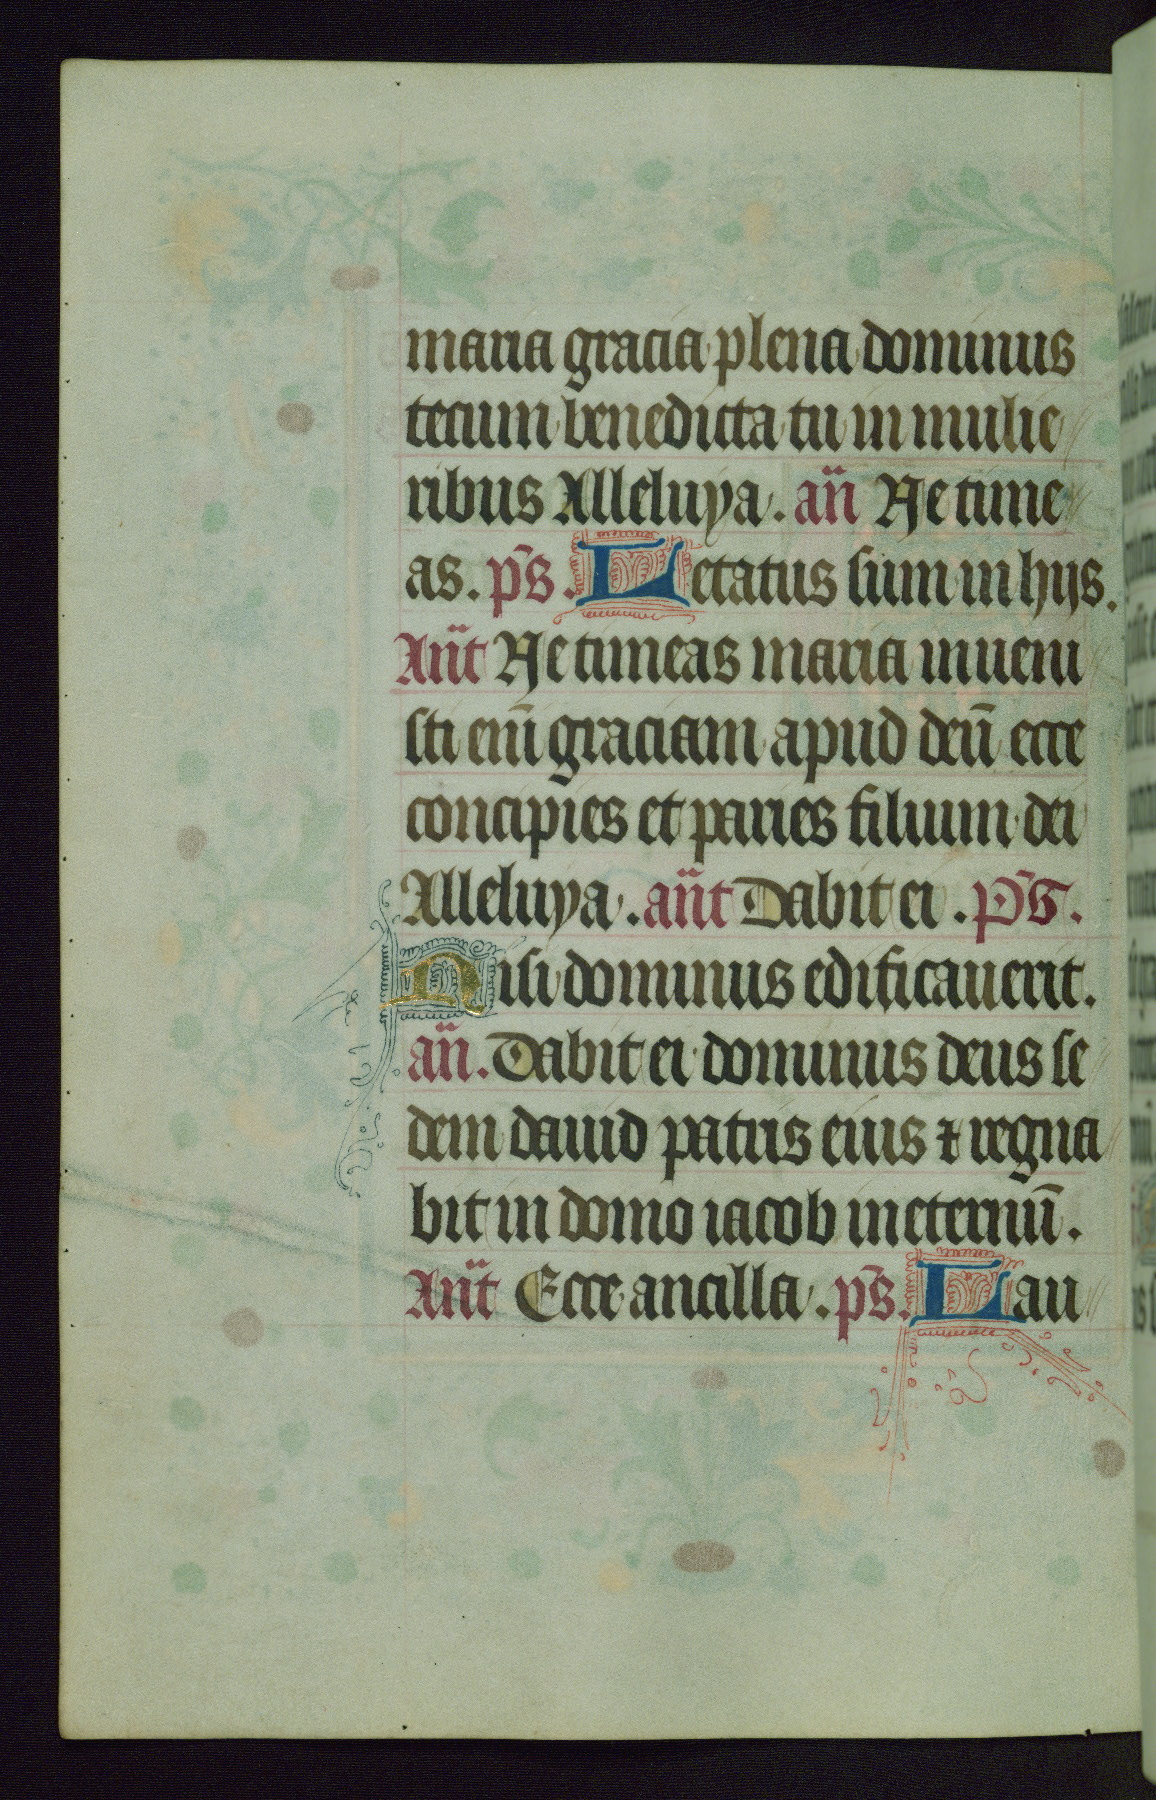 maria gracia plena dominus
tecum benedicta tu in mulie
ribus Alleluya. an̄ Ne time
as. ps̄. Letatus sum in hijs.
An̄t Ne timeas maria inueni
sti eni̅ graciam apud deū ecce
concipies et paries filium dei
Alleluya. an̄t Dabit ei. ps̄.
Nisi dominus edificauerit.
an̄. Dabit ei dominus deus se
dem dauid patris eius ⁊ regna
bit in domo iacob in eternū.
An̄t Ecce ancilla. ps̄. Lau